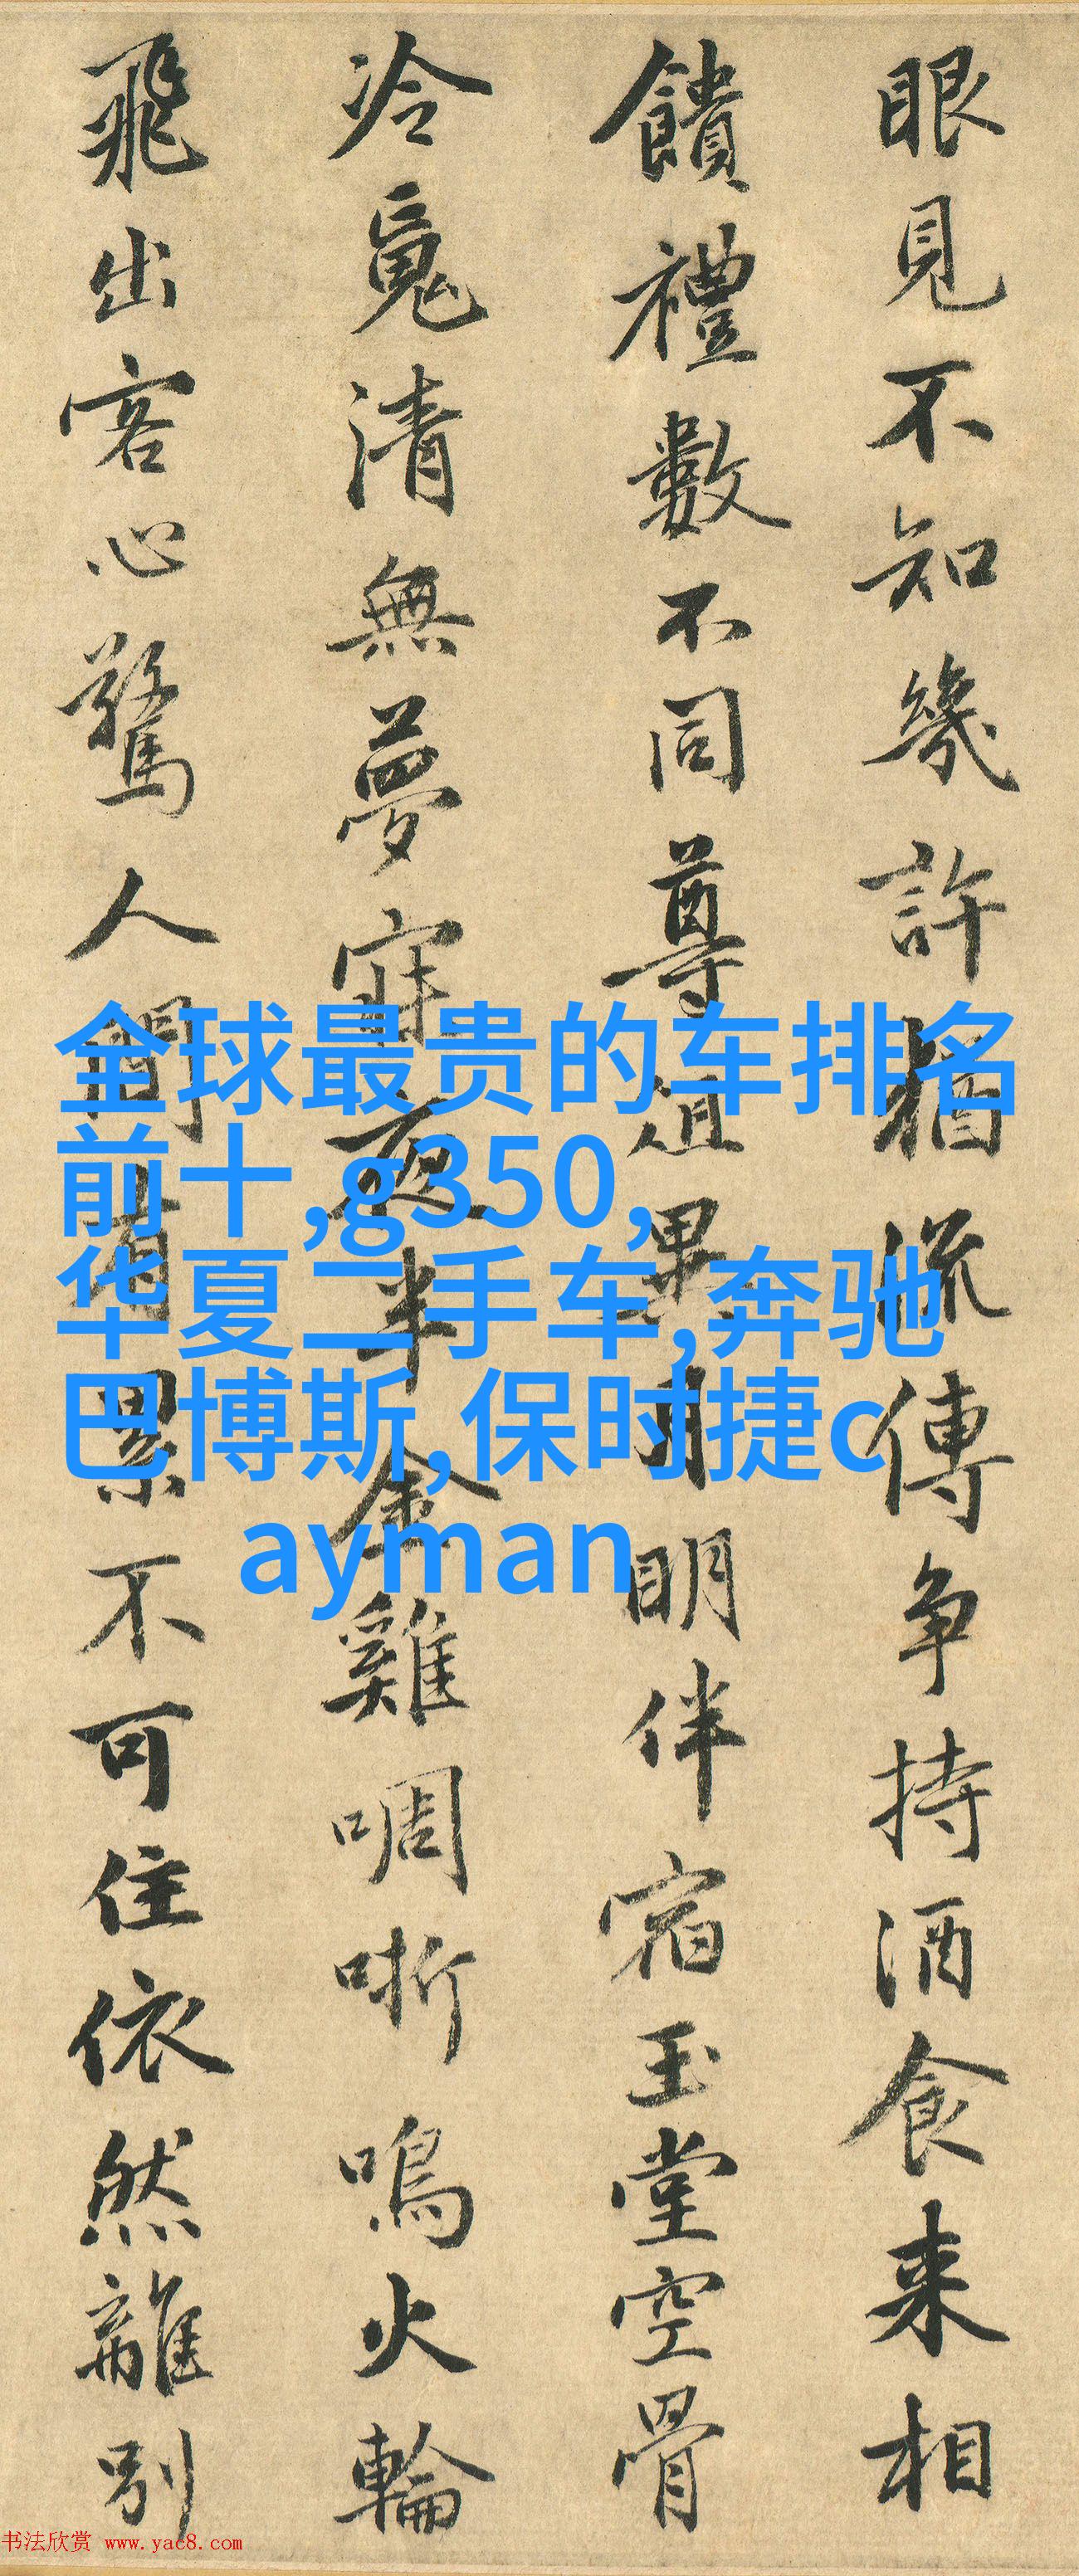 眼見不知幾許猶流傳争持酒食来相
饋禮數不同尊俎異朋明伴宿玉堂空骨
冷覓清無夢寐夜半金雞啁哳鳴火輪
飛出客心驚人間有累不可住依然離別
全球最贵的车排名
前十,g350,
华夏二手车,奔驰
巴博斯,保时捷c
ayman
书法欣赏 www.yac8.com